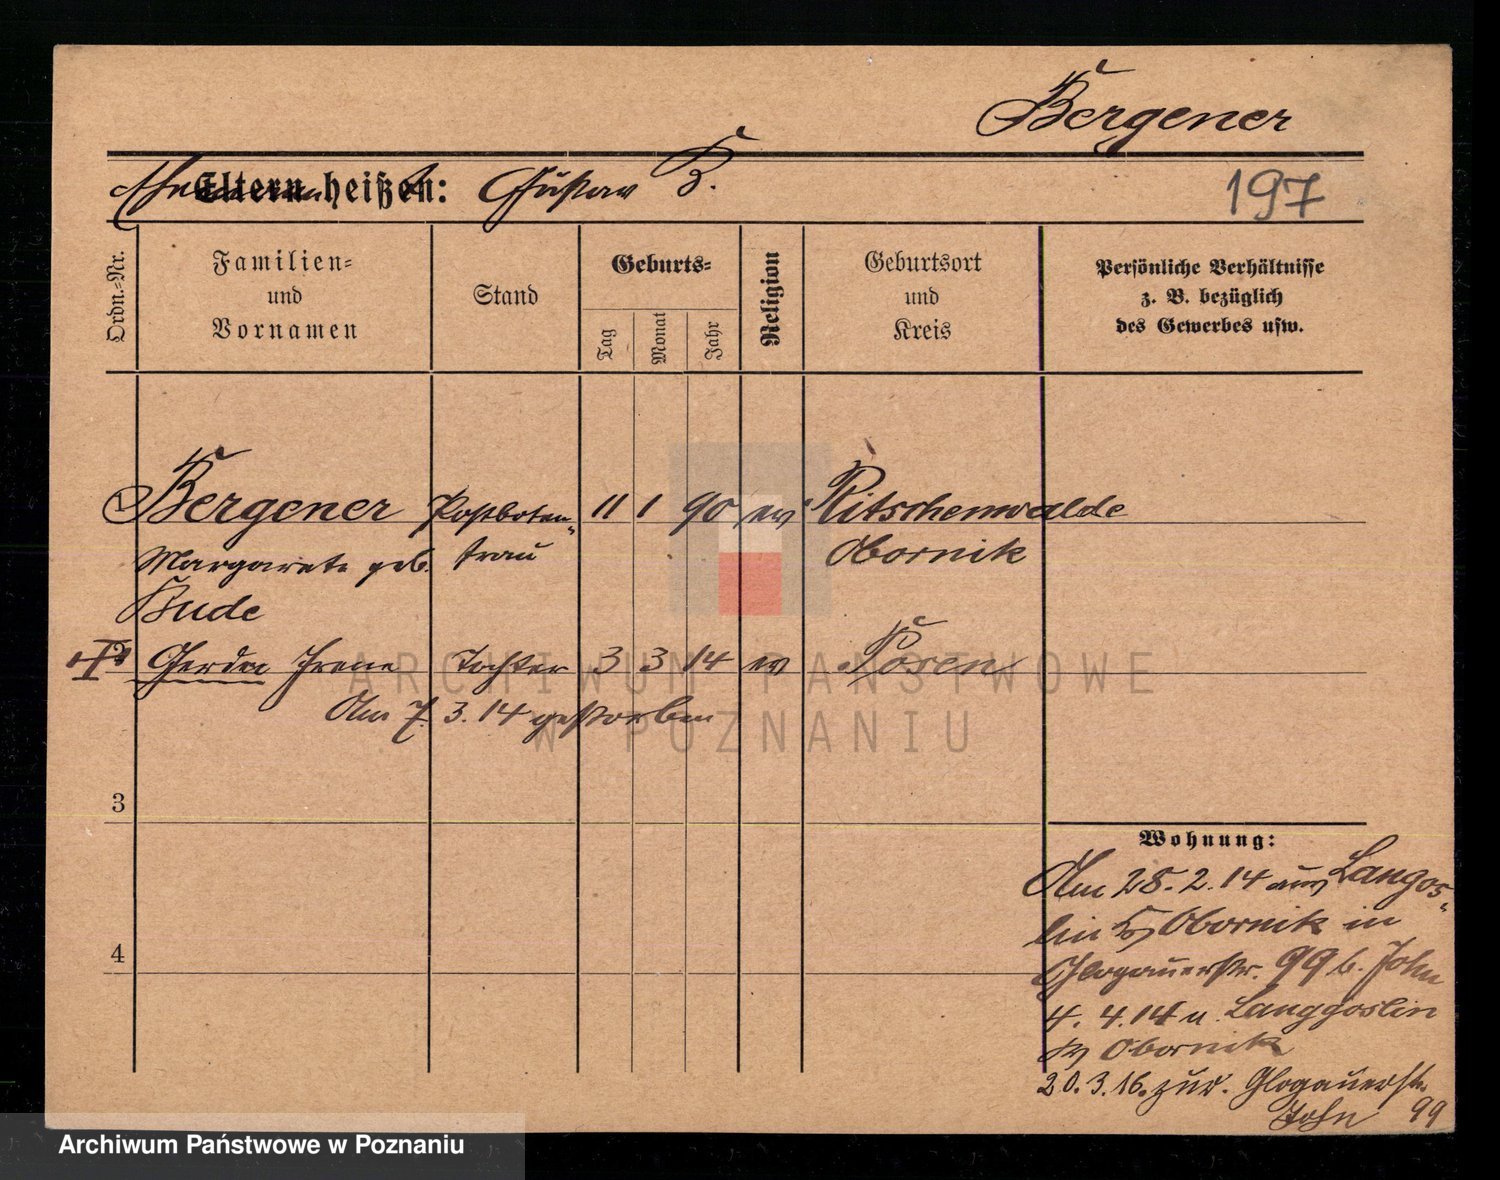 Bergener
Ehemann Eltern heißen: Gustav B.
197
Ordn.-Nr.
Familien-
und
Vornamen
Stand
Geburts-
Tag
Monat
Jahr
Religion
Geburtsort
und
Kreis
Persönliche Verhältnisse
z. B. bezüglich
des Gewerbes usw.
1 Bergener Postboten- 11 1 90 ev Ritschenwalde
Margarete geb. frau Obornik
Bude
2 Gerda Irene Tochter 3 3 14 ev Posen
Am 7. 3. 14 gestorben
3
4
Wohnung:
Am 28. 2. 14 aus Langos-
lin Kr Obornik in
Glogauerstr. 99 b. John
4. 4. 14 n. Langgoslin
Kr Obornik
20. 3. 16. zur. Glogauerstr.
John 99
ARCHIWUM PAŃSTWOWE
W POZNANIU
Archiwum Państwowe w Poznaniu